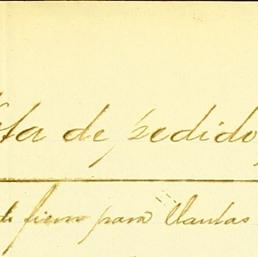 ota de pedido,
de fierro para llantas